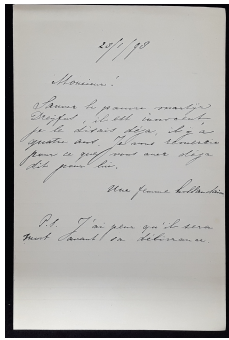 23/1/98
Monsieur!
Sauvez le pauvre martyr
Dreyfus, il est innocent
je le disais déja, il y a
quatre ans, je vous remercie
pour ce que vous avez déja
dit pour lui.
Une femme hollandaise
P.S. J'ai peur qu'il sera
mort avant sa délivrance.